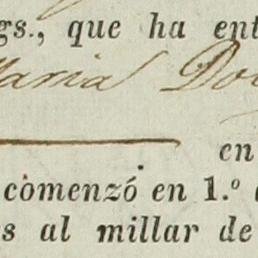 gs., que ha ent
Maria Do
en
comenzó en 1.º
s al millar de